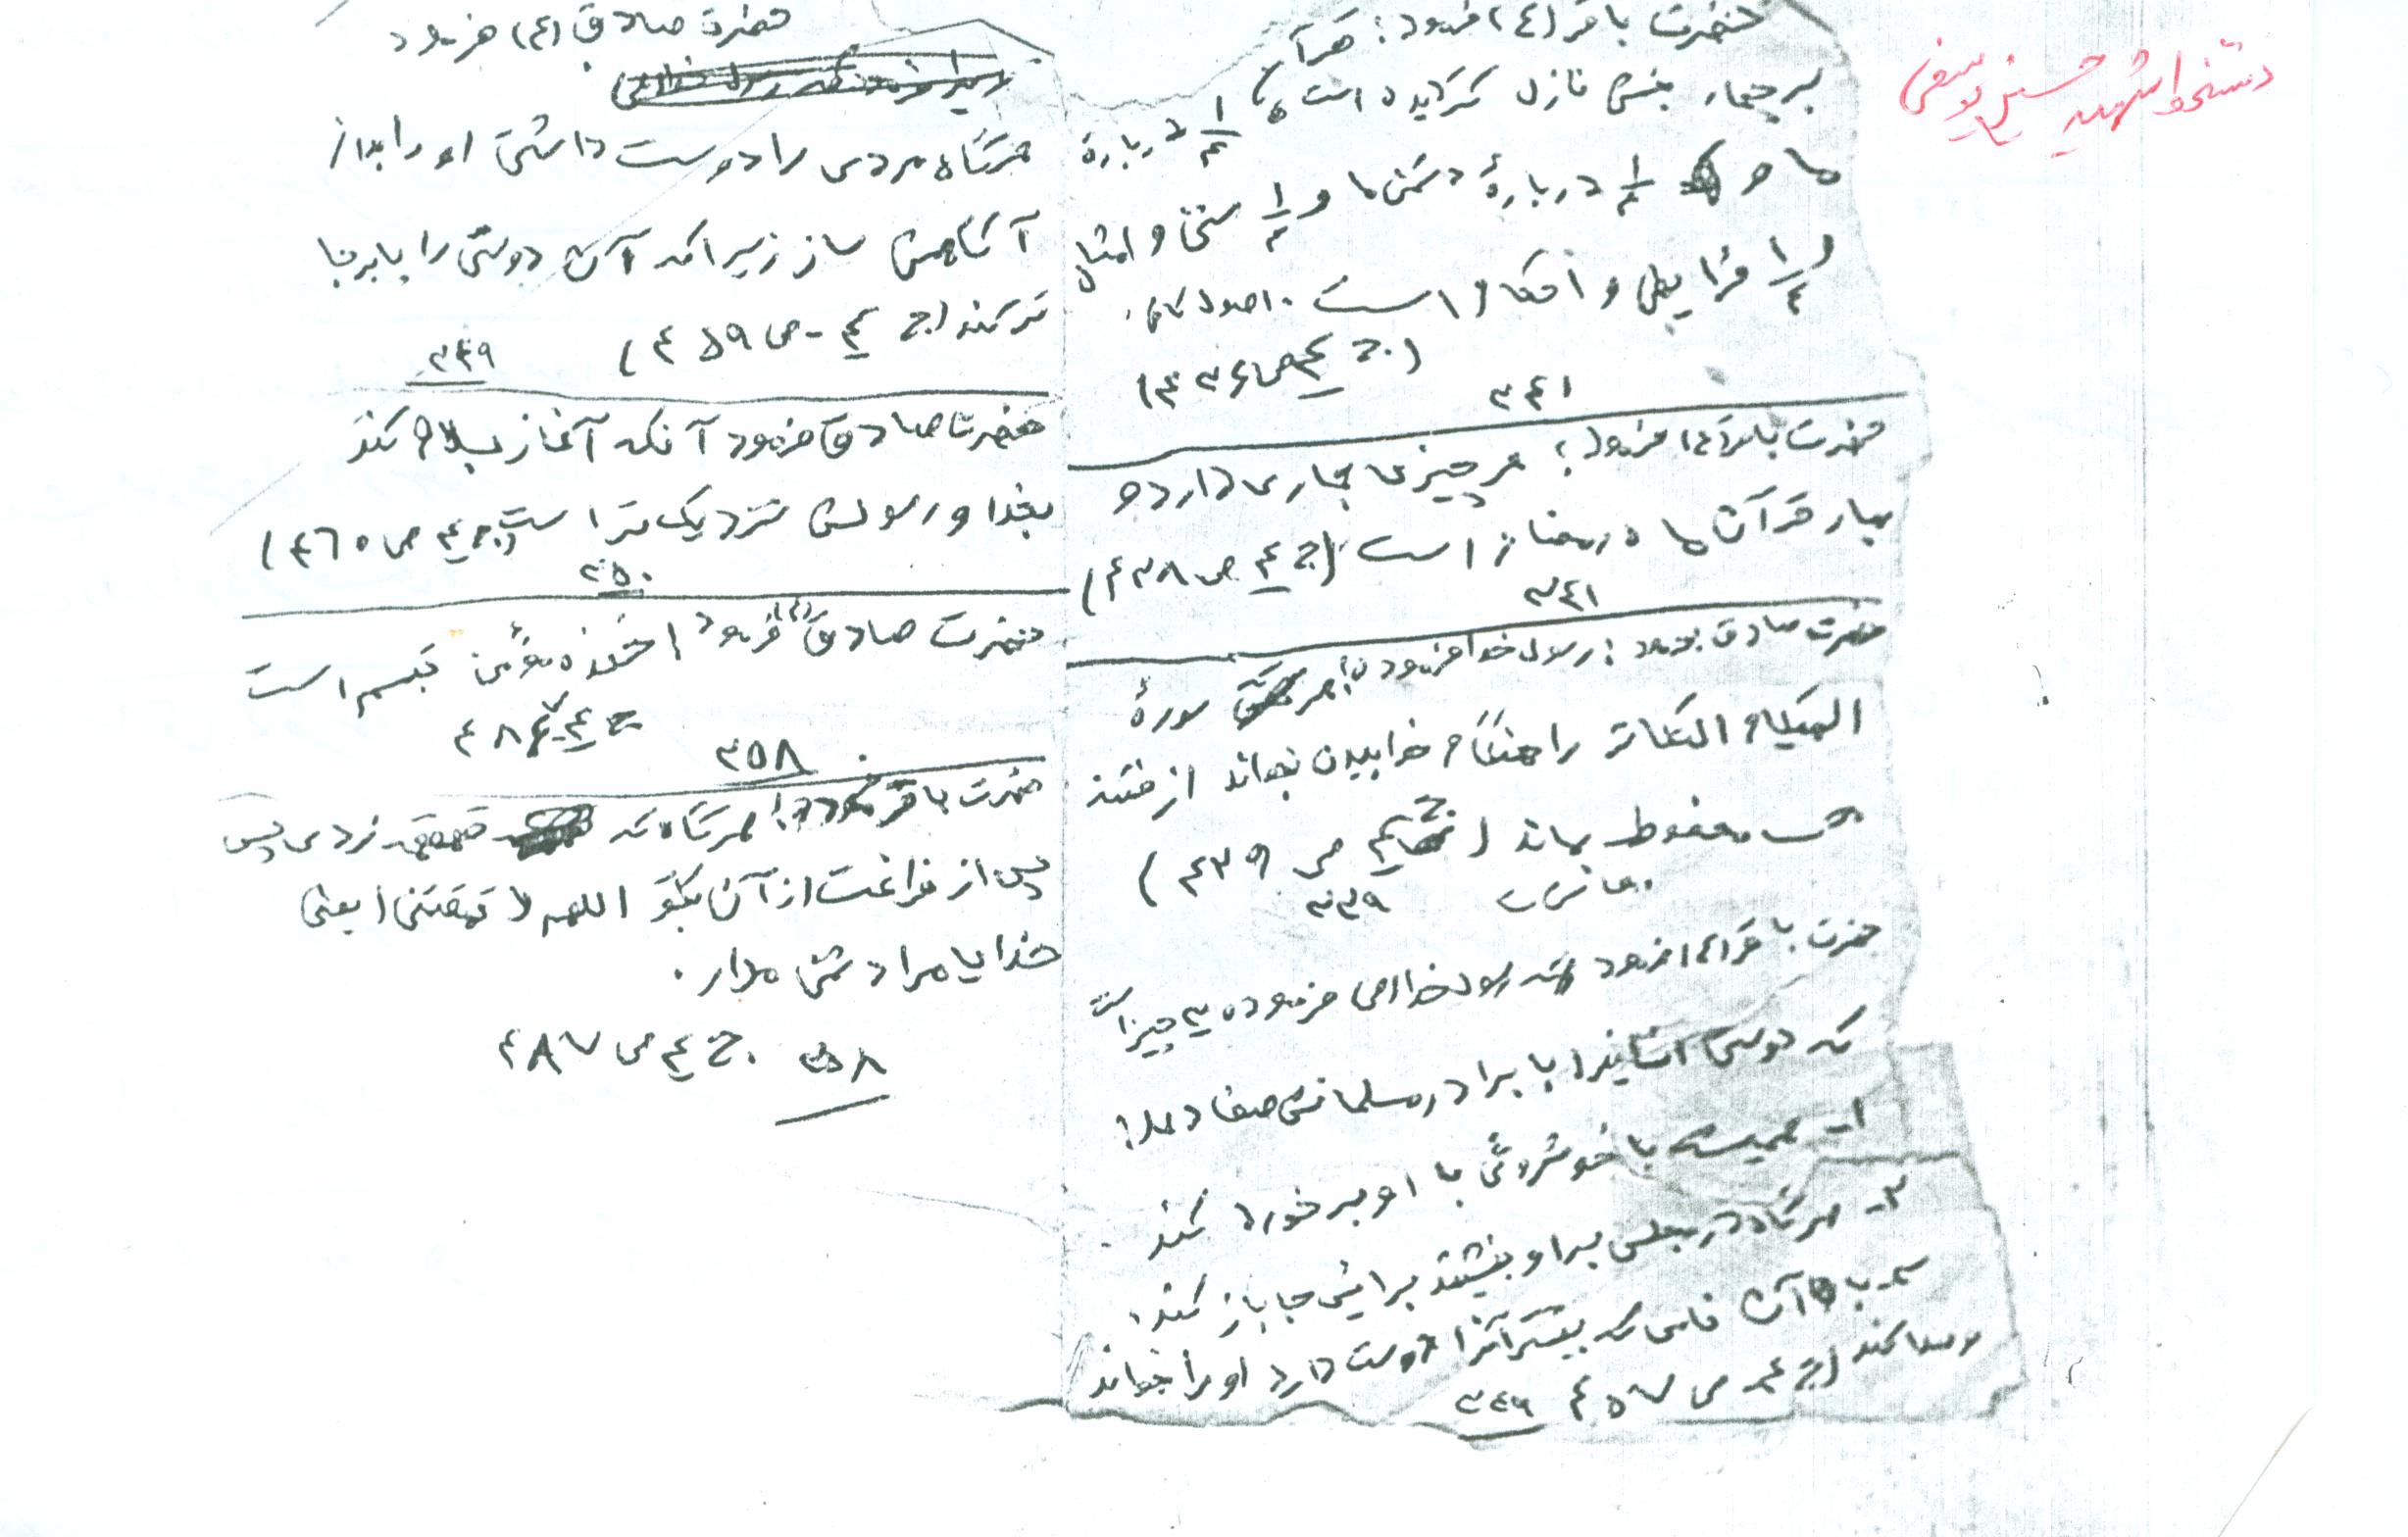 دستخط شهید حسین یوسفی
حضرت باقر (ع) فرمود: قرآن
بر چهار بخش نازل گردیده است ۱/۴ درباره
ما و ۱/۴ دربارهٔ دشمن ما و ۱/۴ سنن و امثال
و ۱/۴ فرایض و احکام است. اصول کافی
(ج ۴ ص ۴۳۶)
۳۴۱
حضرت باقر (ع) فرمود: هر چیزی بهاری دارد و
بهار قرآن ماه رمضان است (ج ۴ ص ۴۳۸)
۳۴۱
حضرت صادق فرمود: رسول خدا فرمود: هرکس سورهٔ
الهیکم التکاثر را هنگام خوابیدن بخواند از فتنه
محفوظ بماند (ج ۴ ص ۴۳۹)
۳۳۹
حضرت باقر (ع) فرمود که رسول خدا (ص) فرموده ۳ چیز است
که دوستی انسان را با برادر مسلمانش صفا دهد:
۱- همیشه با خوشروئی با او برخورد کند.
۲- هرگاه در مجلس بر او بنشیند برایش جا باز کند.
۳- با آن نامی که بیشتر آنرا دوست دارد او را بخواند
و صدا کند (ج ۴ ص ۴۵۷
۳۴۹
حضرت صادق (ع) فرمود
هرگاه مردی را دوست داشتی او را از
آن آگاهش ساز زیرا که آن دوستی را پابرجا
تر کند (ج ۴ - ص ۴۵۹)
۳۴۹
حضرت صادق فرمود آنکه آغاز بسلام کند
بخدا و رسولش نزدیک تر است (ج ۴ ص ۴۶۰)
۳۵۰
حضرت صادق (ع) فرمود: خنده مؤمن تبسم است
ج ۴ ۴۸۶
۳۵۸
حضرت باقر فرمود: هرگاه که قهقهه زدی پس
پس از فراغت از آن بگو اللهم لا تمقتنی (یعنی
خدایا مرا دشمن مدار.
۳۵۸ ج ۴ ص ۴۸۷